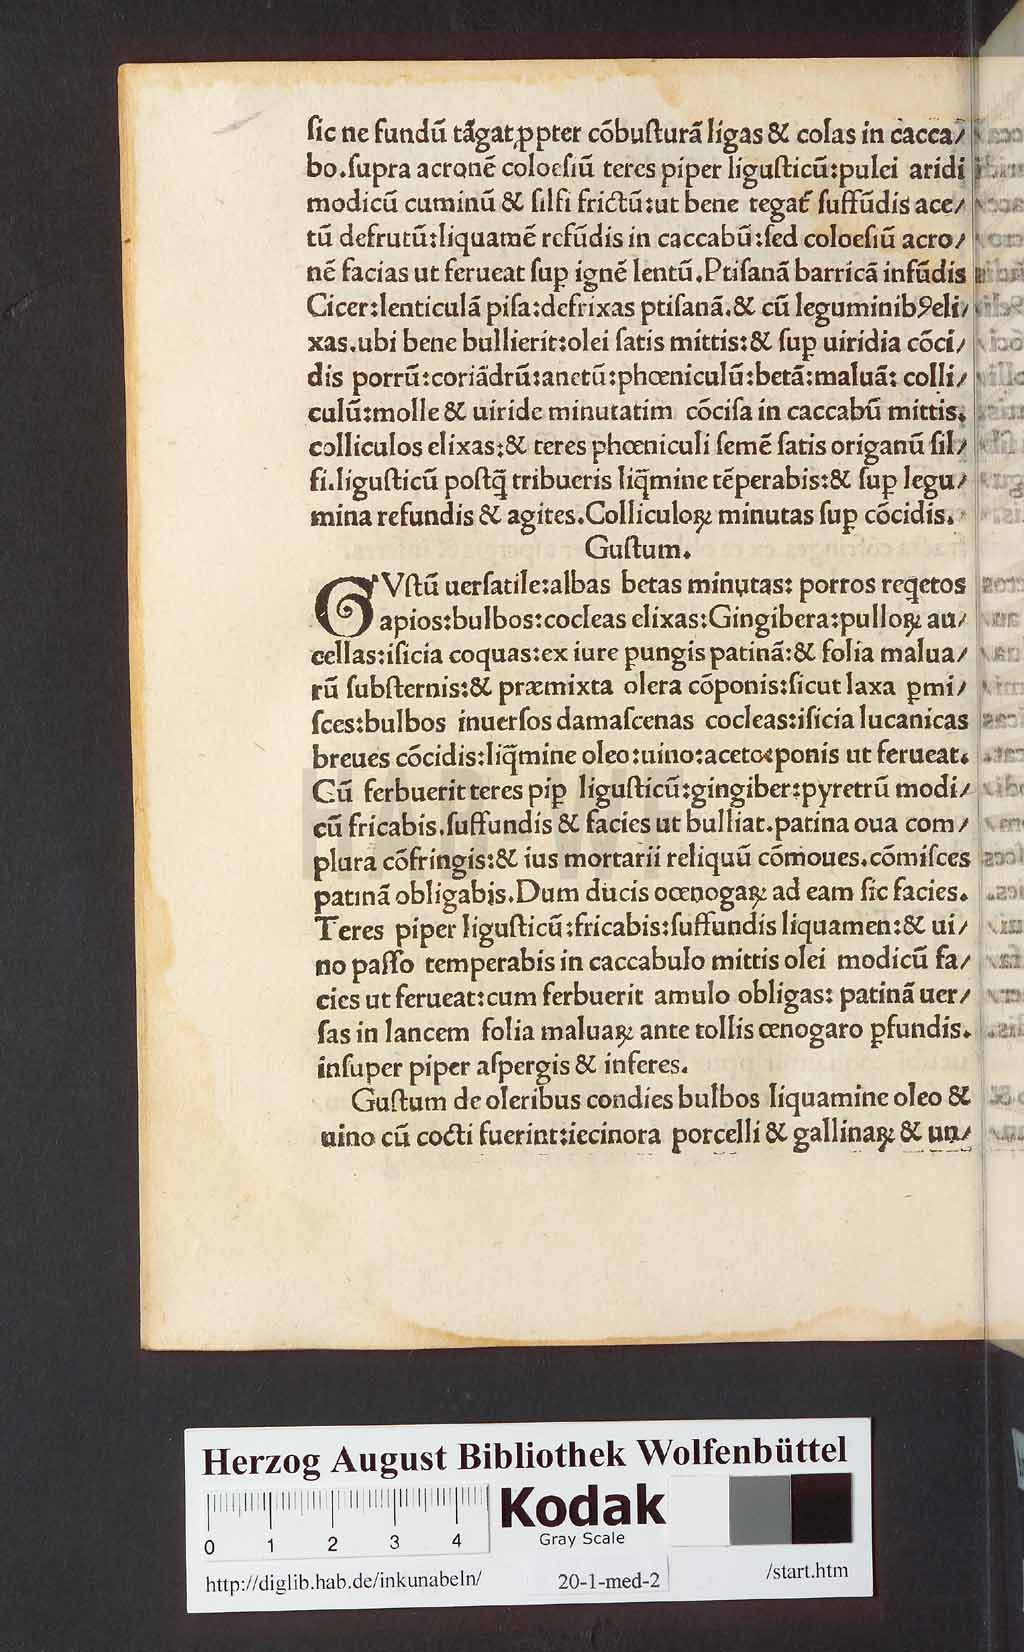 ſic ne fundū tãgat ꝓpter cõbuſturã ligas & colas in cacca/
bo.ſupra acronē coloeſiū teres piper liguſticū:pulei aridi
modicū cuminū & ſilfi frictū:ut bene tegat᷑ ſuffūdis ace/
tū defrutū:liquamē refūdis in caccabū:ſed coloeſiū acro/
nē facias ut ferueat ſuꝑ ignē lentū.Ptiſanã barricã infūdis
Cicer:lenticulã piſa:defrixas ptiſanã.& cū leguminibꝰeli/
xas.ubi bene bullierit:olei ſatis mittis:& ſuꝑ uiridia cõci/
dis porrū:coriãdrū:anetū:phœniculū:betã:maluã: colli/
culū:molle & uiride minutatim cõciſa in caccabū mittis.
colliculos elixas:& teres phœniculi ſemē ſatis origanū ſil/
fi.liguſticū poſtq̃ tribueris liq̃mine tēperabis:& ſuꝑ legu/
mina refundis & agites.Colliculoꝝ minutas ſuꝑ cõcidis.
Guſtum.
GVſtū uerſatile:albas betas minutas: porros reꝗetos
apios:bulbos:cocleas elixas:Gingibera:pulloꝝ au/
cellas:iſicia coquas:ex iure ꝑungis patinã:& folia malua/
rū ſubſternis:& præmixta olera cõponis:ſicut laxa ꝑmi/
ſces:bulbos inuerſos damaſcenas cocleas:iſicia lucanicas
breues cõcidis:liq̃mine oleo:uino:aceto:ponis ut ferueat.
Cū ferbuerit teres piꝑ liguſticū:gingiber:pyretrū modi/
cū fricabis.ſuffundis & facies ut bulliat.patina oua com/
plura cõfringis:& ius mortarii reliquū cõmoues.cõmiſces
patinã obligabis.Dum ducis œnogaꝝ ad eam ſic facies.
Teres piper liguſticū:fricabis:ſuffundis liquamen:& ui/
no paſſo temperabis in caccabulo mittis olei modicū fa/
cies ut ferueat:cum ferbuerit amulo obligas: patinã uer/
ſas in lancem folia maluaꝝ ante tollis œnogaro ꝑfundis.
inſuper piper aſpergis & inferes.
Guſtum de oleribus condies bulbos liquamine oleo &
uino cū cocti fuerint:iecinora porcelli & gallinaꝝ & un/
Herzog August Bibliothek Wolfenbüttel
Kodak
Gray Scale
0 1 2 3 4
http://diglib.hab.de/inkunabeln/ 20-1-med-2 /start.htm